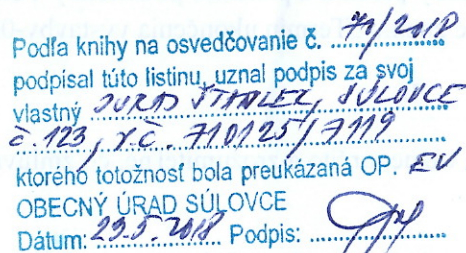 Podľa knihy na osvedčovanie č. 70/2018
podpísal túto listinu, uznal podpis za svoj
vlastný JURAJ SÚLOVCE
č. 123, r.č. 710125/7119
ktorého totožnosť bola preukázaná OP. EV
OBECNÝ ÚRAD SÚLOVCE
Dátum: 29.5.2018 Podpis: